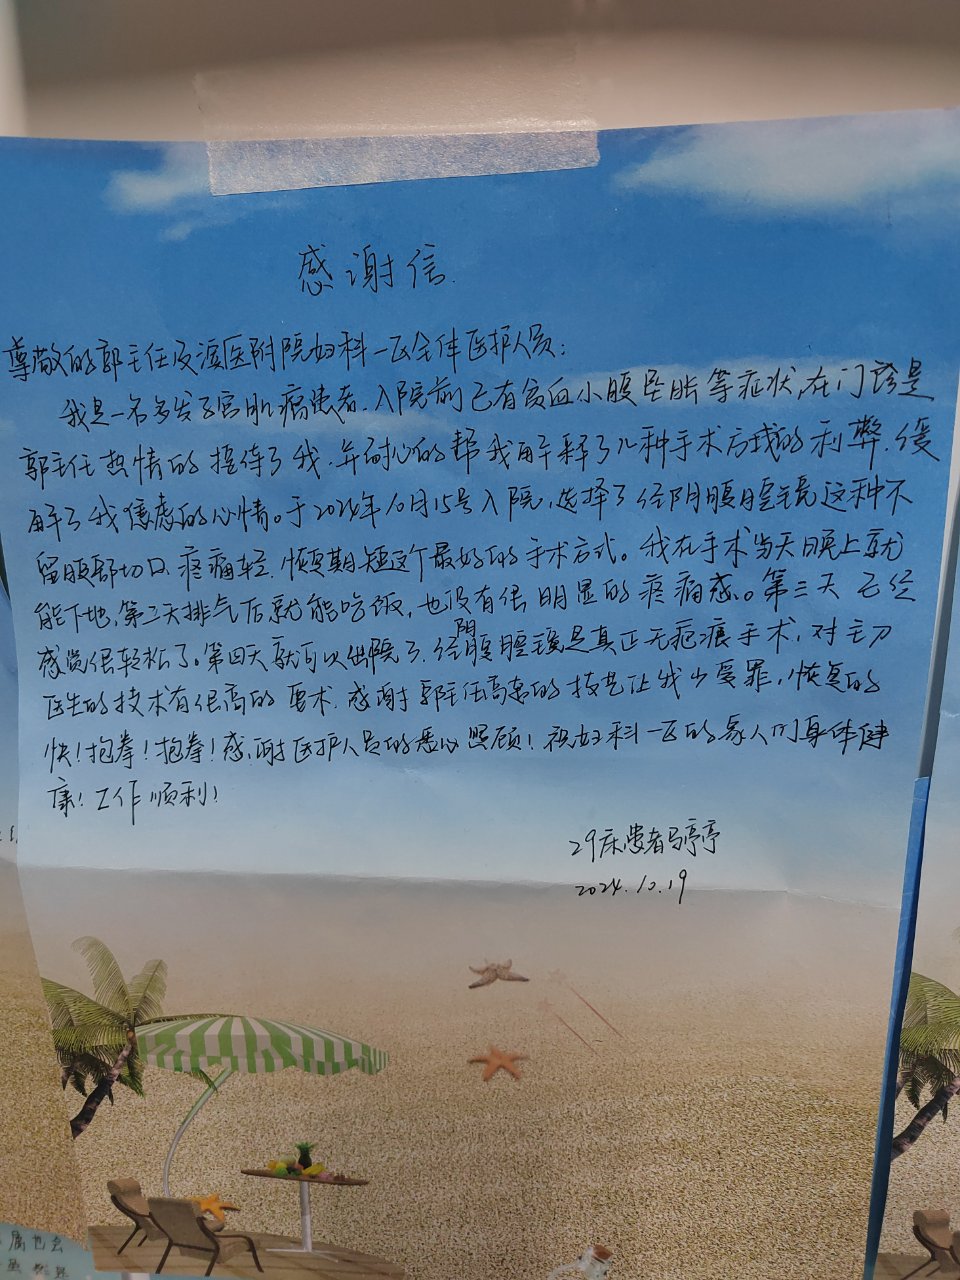 感谢信.
尊敬的郭主任及滨医附院妇科一区全体医护人员:
我是一名多发子宫肌瘤患者.入院前已有贫血小腹坠胀等症状,在门诊是
郭主任热情的接待了我.并耐心的帮我解释了几种手术方式的利弊.缓
解了我焦虑的心情。于2024年10月15号入院,选择了经阴腹腔镜这种不
留腹部切口.疼痛轻.恢复期短这个最好的手术方式。我在手术当天晚上就
能下地,第二天排气后就能吃饭,也没有很明显的疼痛感。第三天已经
感觉很轻松了。第四天就可以出院了.经阴腹腔镜是真正无疤痕手术,对主刀
医生的技术有很高的要求.感谢郭主任高超的技艺让我少受罪,恢复的
快!抱拳!抱拳!感谢医护人员的悉心照顾!祝妇科一区的家人们身体健
康!工作顺利!
29床患者马亭亭
2024.10.19
属也会